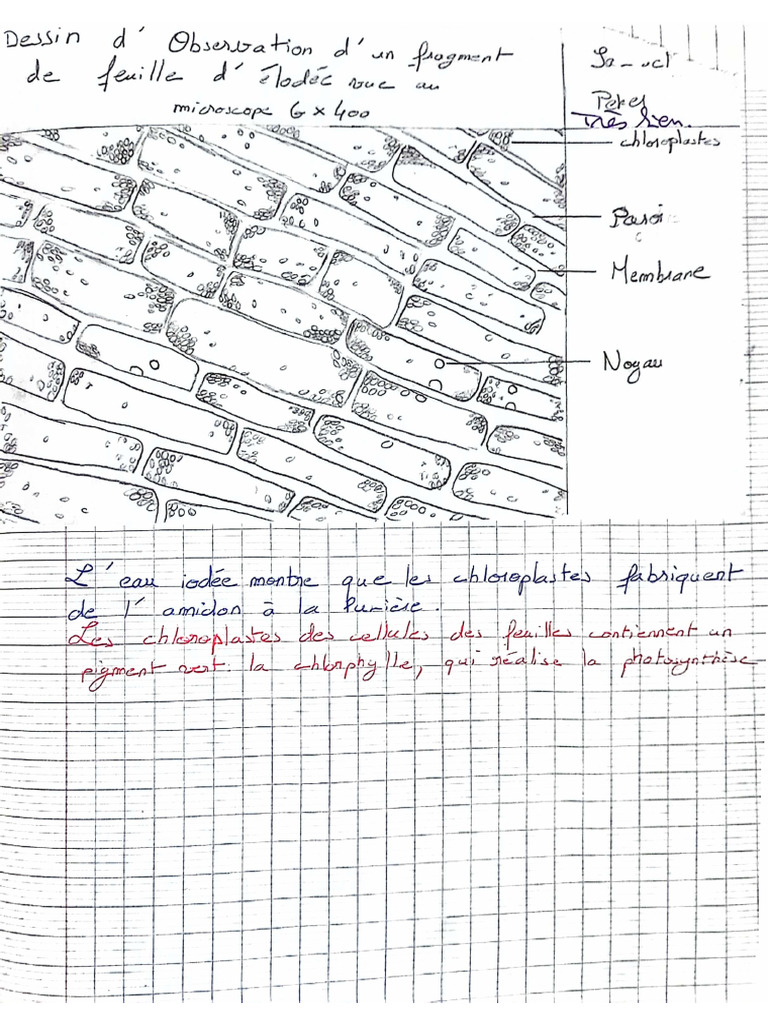 Dessin d'Observation d'un fragment
de feuille d'élodée vue au
microscope G x 400
Très bien.
chloroplastes
Paroi
Membrane
Noyau
L'eau iodée montre que les chloroplastes fabriquent
de l'amidon à la lumière.
Les chloroplastes des cellules des feuilles contiennent un
pigment vert. la chlorphylle, qui réalise la photosynthèse